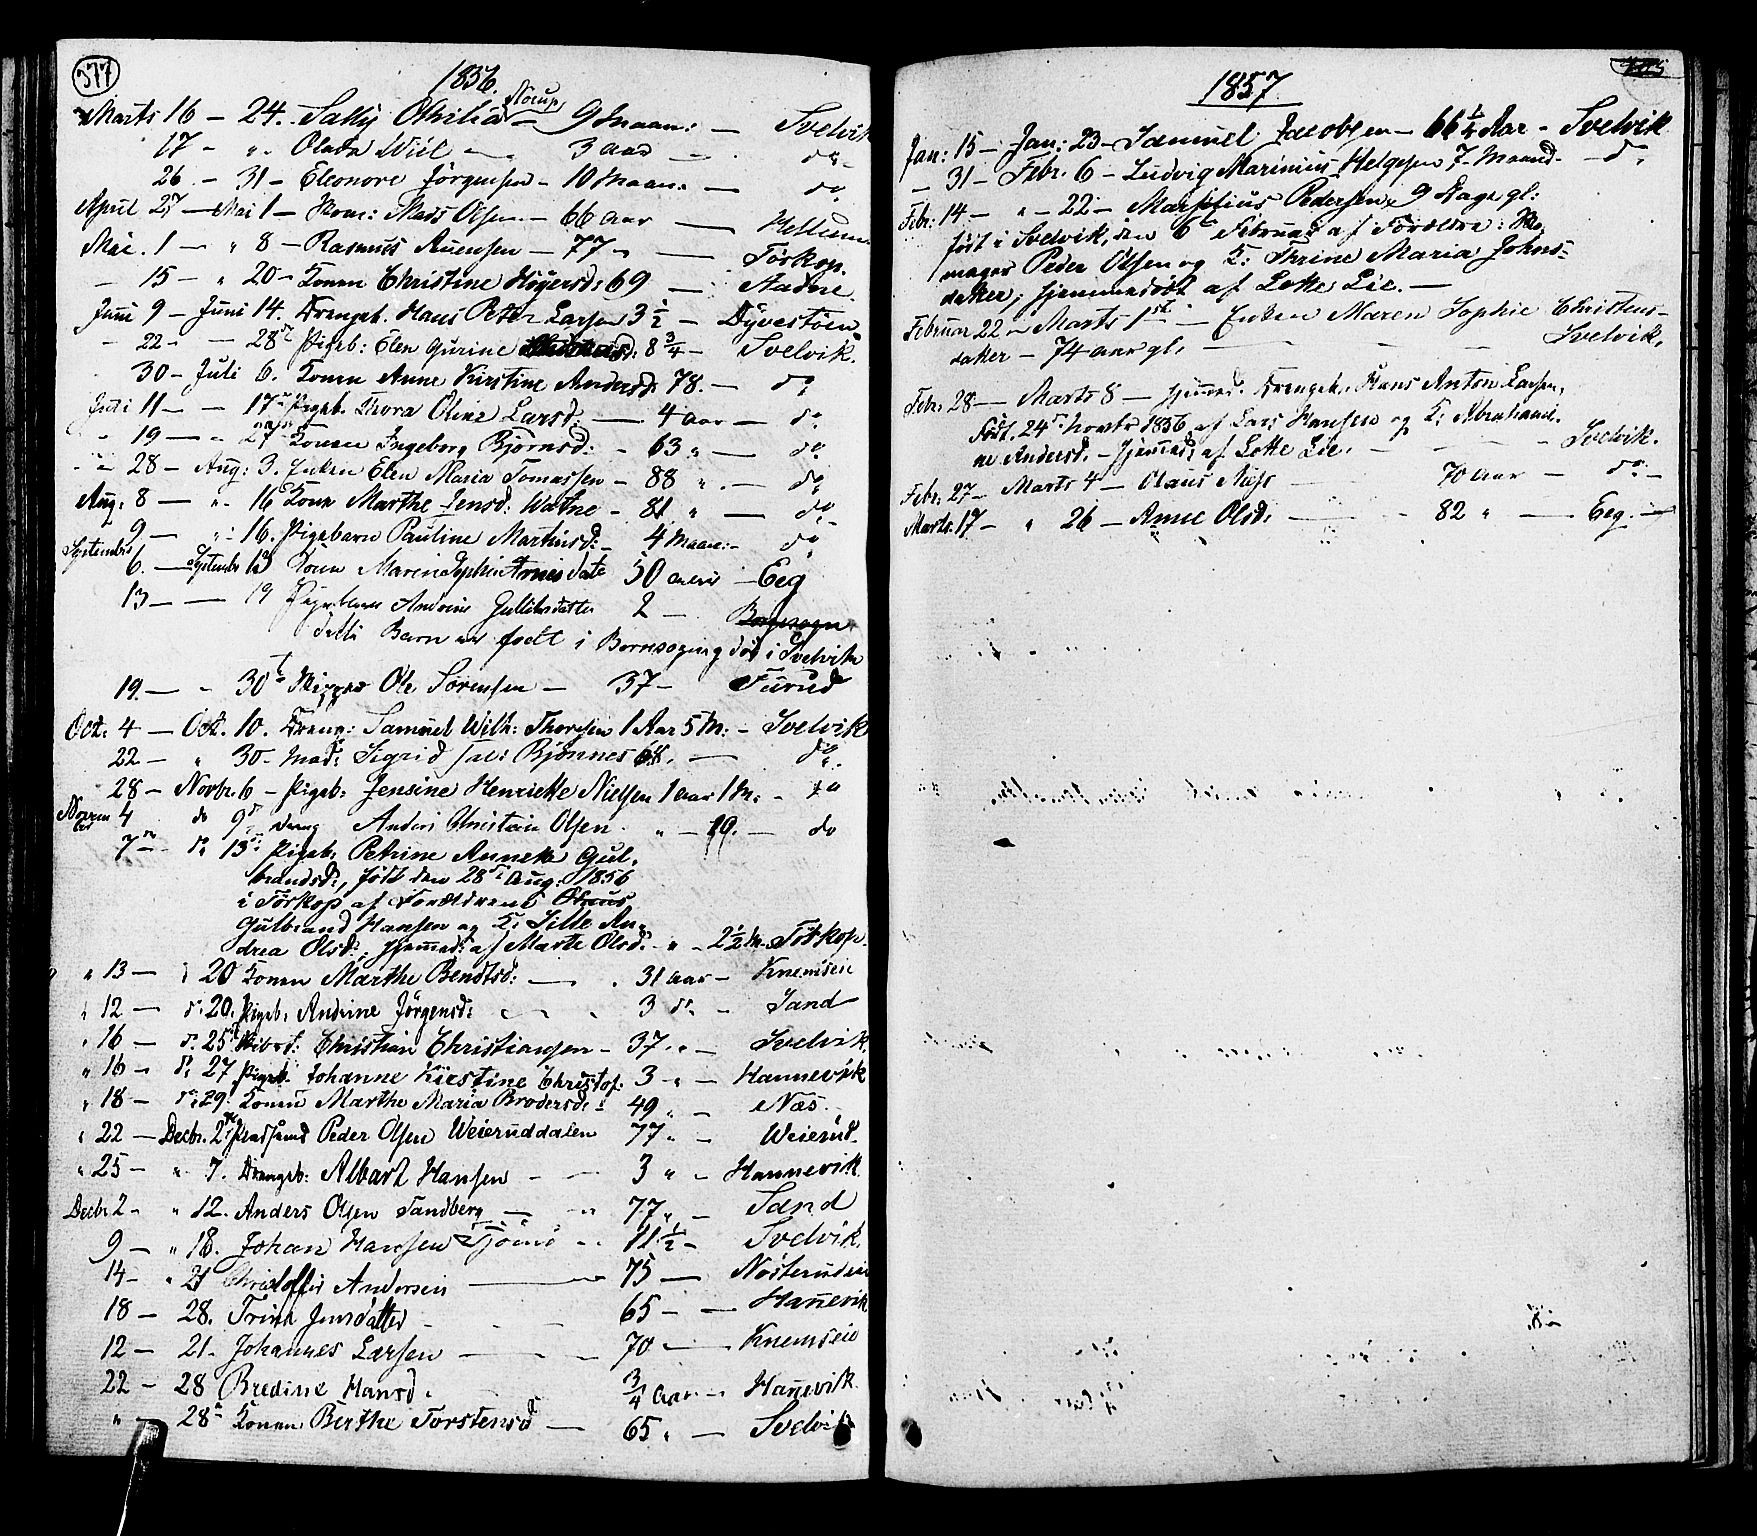 377
1856.
Marts 16 — 24. Sally Othilia Norup — 9 Maan: — Svelvik
17 — „ Olava Wiel — 3 aar — do
26 — 31 — Eleonore Jörgensen — 10 Maan: — do
April 27 — Mai 1 — Kom: Mads Olsen — 66 aar — Hellum
Mai 1 — „ 8 — Rasmus Auensen — 77 „ — Törkop.
— 15 — „ 20 — Konen Christine Högersd: 69 — Aadne
Juni 9 — Juni 14. Drengeb. Hans Peter Larsen 3 1/2 — Dÿvestöen
— 22 — — 28de Pigeb: Elen Gurine 8 3/4 — Svelvik.
30 — Juli 6. Konen Anne Kirstine Andersd: 78. — do
Juli 11 — — 17de Pigeb. Thora Oline Larsd: — 4 aar — do
19 — „ 27 Konen Ingeborg Björnsd: — 63 „ — do
„ 28 — Aug: 3. Enken Elen Maria Tomassen — 88 „ — do
Aug: 8 — „ 16 Konen Marthe Jensd: Watne — 81 „ — do
9 — „ 16. Pigebarn Pauline Martinsd: — 4 Maan: — do
September 6. — September 13 Konen Maren Sophie Arnesdatr 50 aar — Eeg
13 — — 19 Pigebarn Andrine Gulliksdatter 2 — Bornesogn
dette Barn er fodt i Bornesogn og död i Svelvik
19. — „ 30te Skipper Ole Sörensen — 37 — Furud
Oct: 4 — Oct. 10. Dreng: Samuel Wilh: Thorsen 1 Aar 5 M: — Svelvik
22 — „ 30 — Mad: Sigrid sal: Björnnes 68. — do
28 — Novbr. 6 — Pigeb: Jensine Henriette Nielsen 1 aar 1 M: — do
November 4 do 9de dreng Anders Christian Olsen „ — 19. — do
7de — do 13de Pigeb: Petrine Annette Gul-
brandsd:, födt den 28de Aug: 1856
i Törkop af Forældrene
Gulbrand Hansen og K: Sille An-
drea Olsd:, hjemmed: af Marte Olsd: „ — 2 1/2 M. Törkop.
„ 13 — „ 20 Konen Marthe Bendtsd: — 31 aar — Knemseie
„ 12 — do 20. Pigeb: Andrine Jörgensd: 3 do — Sand
„ 16 — do 25de Christian Christiansen — 37 „ — Svelvik.
„ 16 — do 27 Pigeb. Johanne Kirstine Christof: 3 „ — Hannevik
„ 18 — do 29. Konen Marthe Maria Brodersd: 49 „ — Næs.
„ 22 — Decbr. 2de Peder Olsen Weieruddalen 77 „ — Weierud.
„ 25 — „ 7. Drengeb: Albart Hansen — 3 „ — Hannevik
Decbr 2 — „ 12. Anders Olsen Sandberg — 77 „ — Sand
9 — „ 18. Johan Hansen Tjöme — 11 1/2 — Svelvik.
14 — „ 21 Christoffer Andersen — 75 — Nösterudeie
18 — 28. Trine Jensdatter 65 — — Hannevik
12 — 21. Johannes Larsen — 70 — Knemseie
22 — 28 Bredine Hansd. 3/4 Aar — Hannevik
„ — 28de Konen Berthe Torstensd — 65 „ — Svelvik
1857
Jan: 15 — Jan: 23 — Samuel Jacobsen — 66 1/4 Aar — Svelvik
— 31 — Febr. 6 — Ludvig Marinius Helgesen 7 — Maand — do
Febr: 14 — „ — 22 — Pedersen, 9 Dage gl:
født i Svelvik, den 6te Februar af Forældre:
Peder Olsen og K: Thrine Maria Johns-
datter, hjemmedöbt af Lotte Lie. —
Februar 22 — Marts 1st — Enken Maren Sophie Christens-
datter — 74 aar gl. — Svelvik.
Febr. 28 — Marts 8 — hjemmed. Drengeb. Hans Anton Larsen,
Födt. 24de 1856 af Lars Hansen og K: Abrahami-
ne Andersd. — hjemmed. af Lotte Lie. — Svelvik.
Febr. 27 — Marts 4 — Olaus 70 Aar — do
Marts 17 — „ 26 — Anne Olsd: — 82 „ — Eeg.